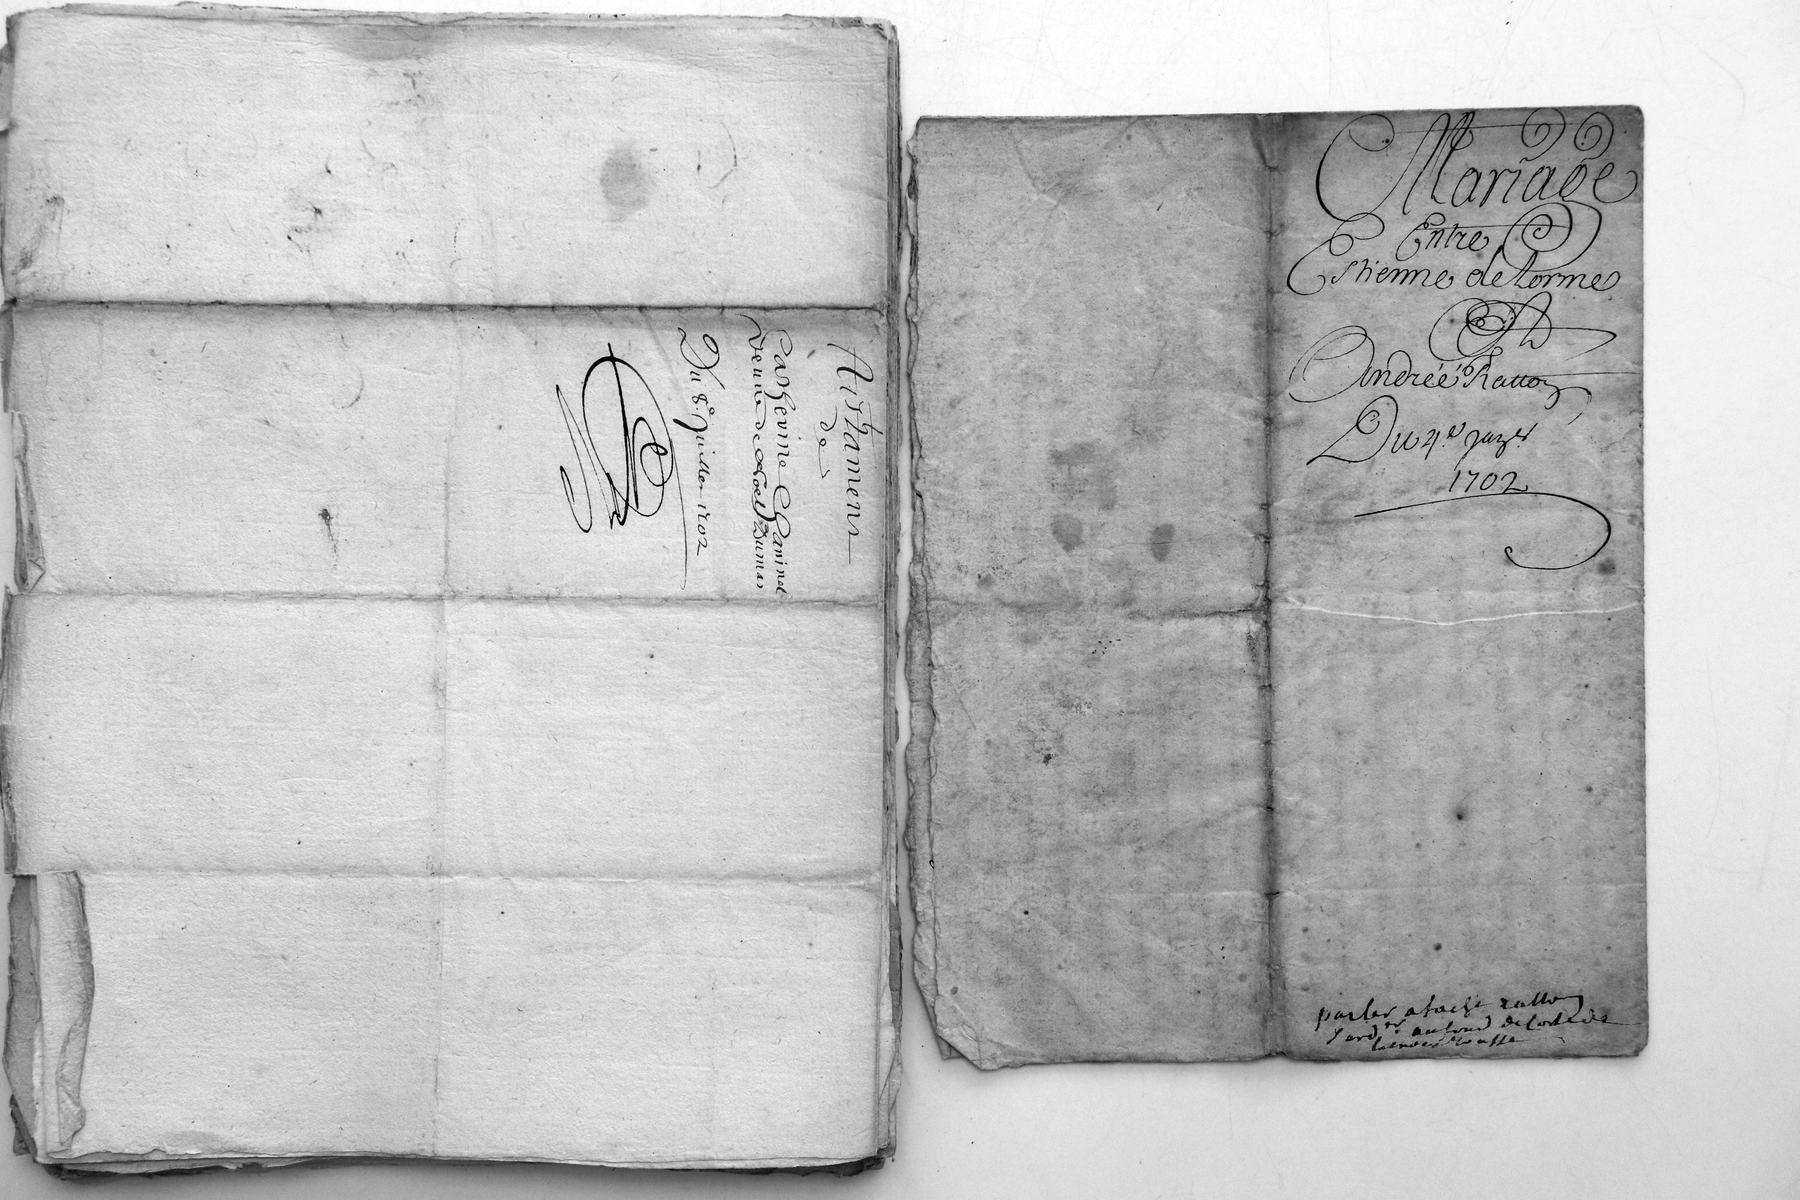 Testament
de
Catherine Chaminel
Veuve de Noel Dumas
Du 8e Juillet 1702
Mariage
Entre
Estienne delorme
Et
Andrée Ratton
Du 4e janer
1702
parler a
au fond de